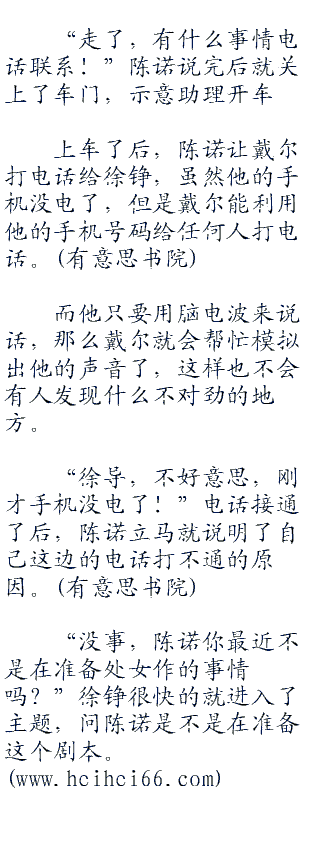 “走了，有什么事情电
话联系！”陈诺说完后就关
上了车门，示意助理开车
上车了后，陈诺让戴尔
打电话给徐铮，虽然他的手
机没电了，但是戴尔能利用
他的手机号码给任何人打电
话。(有意思书院)
而他只要用脑电波来说
话，那么戴尔就会帮忙模拟
出他的声音了，这样也不会
有人发现什么不对劲的地
方。
“徐导，不好意思，刚
才手机没电了！”电话接通
了后，陈诺立马就说明了自
己这边的电话打不通的原
因。(有意思书院)
“没事，陈诺你最近不
是在准备处女作的事情
吗？”徐铮很快的就进入了
主题，问陈诺是不是在准备
这个剧本。
(www.hcihci66.com)